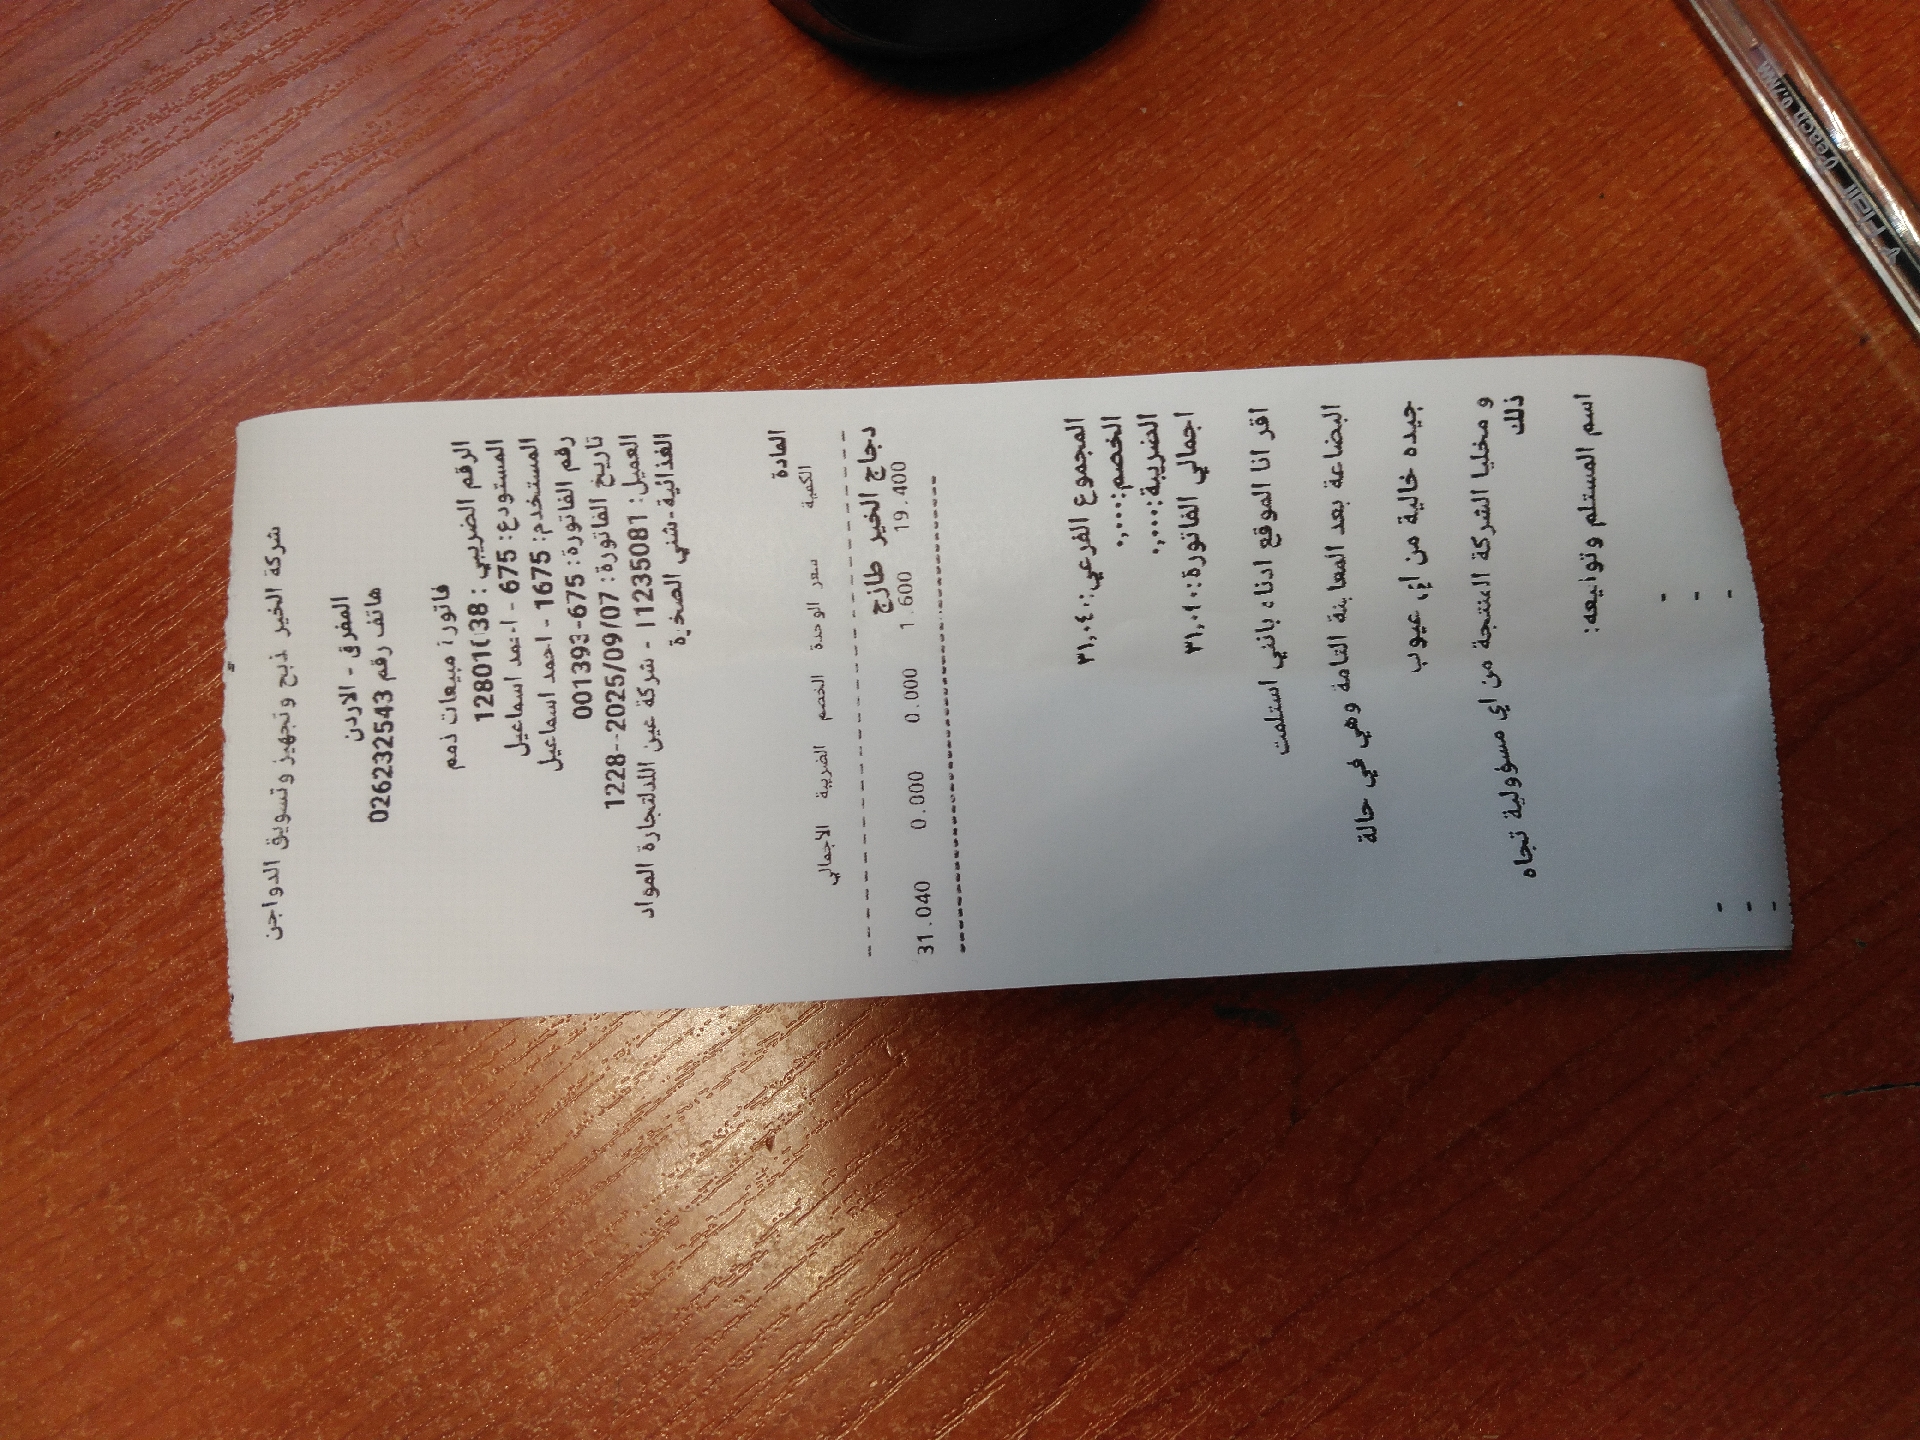 شركة الخير لذبح وتجهيز وتسويق الدواجن
المفرق - الاردن
هاتف رقم 026232543
فاتورة مبيعات ذمم
الرقم الضريبي :
المستودع: 675 - احمد اسماعيل
المستخدم: 1675 - احمد اسماعيل
رقم الفاتورة: 001393-675
تاريخ الفاتورة: 2025/09/07--1228
العميل: 11235081 - شركة عين اللدلتجارة المواد
الغذائية-شني الصخرة
المادة
الكمية سعر الوحدة الخصم الضريبة الاجمالي
دجاج الخير طازج
19.400 1.600 0.000 0.000 31.040
المجموع الفرعي: ٣١,٠٤٠
الخصم: ٠,٠٠٠
الضريبة: ٠,٠٠٠
اجمالي الفاتورة: ٣١,٠٤٠
اقر انا الموقع ادناه بانني استلمت
البضاعة بعد المعاينة التامة وهي في حالة
جيده خالية من اي عيوب
و مخليا الشركة المنتجة من اي مسؤولية تجاه
ذلك
اسم المستلم وتوقيعه:
Y-PLUS 0.7MM